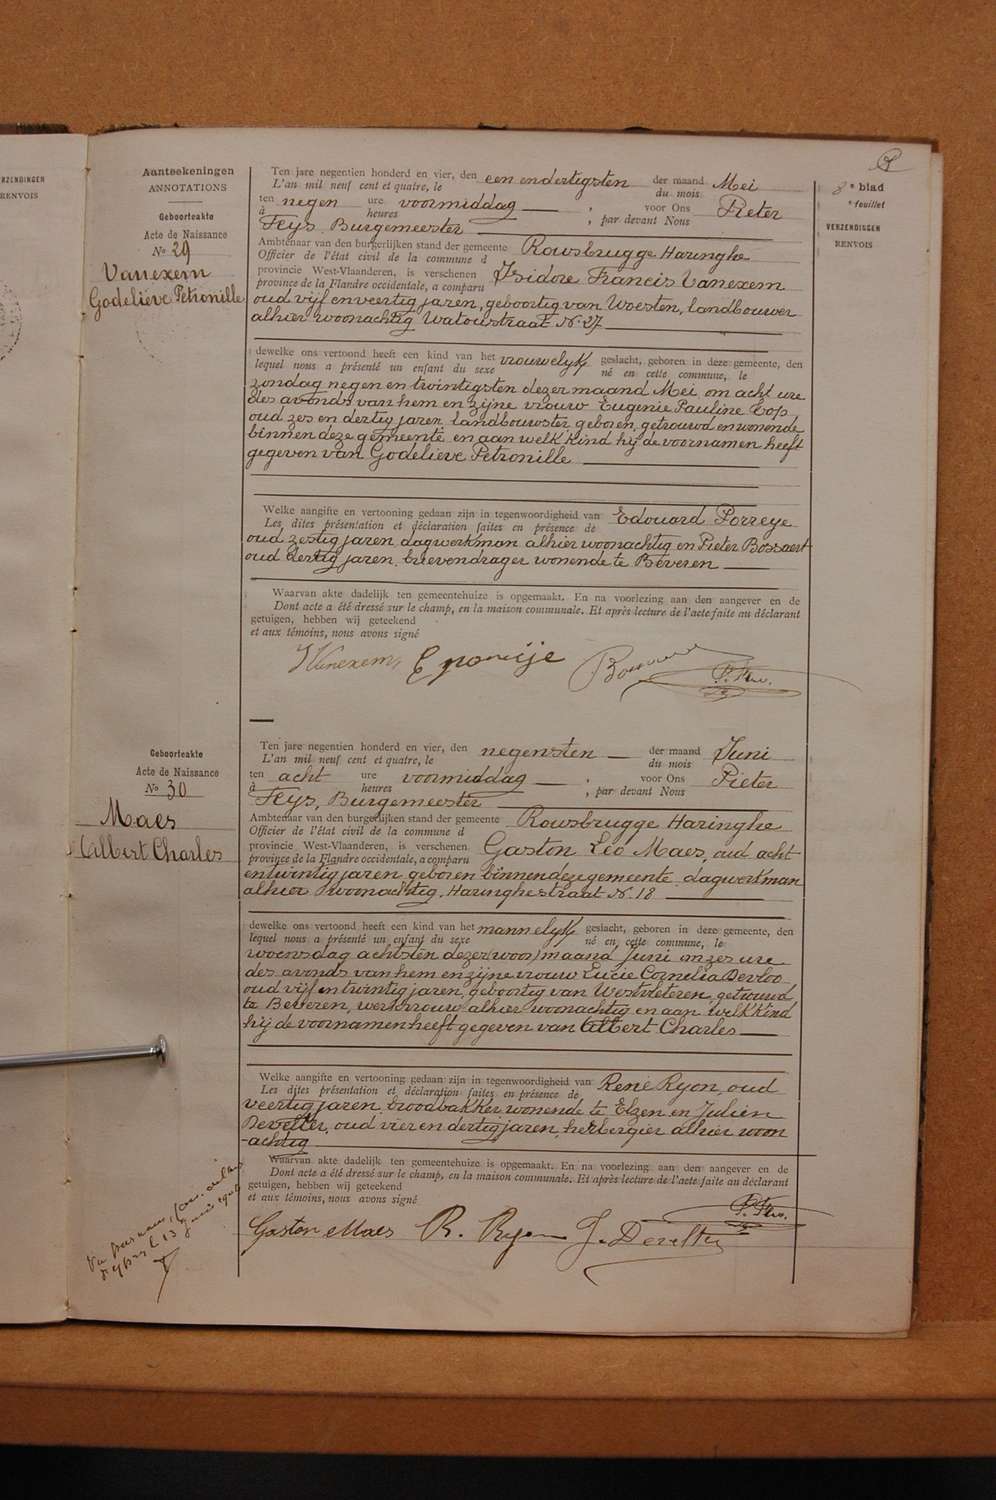 VERZENDINGEN
RENVOIS
Aanteekeningen
ANNOTATIONS
Geboorteakte
Acte de Naissance
No 29
Vanexem
Godelieve Petronille
Ten jare negentien honderd en vier, den een en dertigsten der maand Mei
L'an mil neuf cent et quatre, le du mois
ten negen ure voormiddag , voor Ons Pieter
à heures , par devant Nous
Feys, Burgemeester
Ambtenaar van den burgerlijken stand der gemeente Rousbrugge Haringhe
Officier de l'état civil de la commune d
provincie West-Vlaanderen, is verschenen Isidore Francis Vanexem
province de la Flandre occidentale, a comparu
oud vijf en veertig jaren, geboortig van Woesten, landbouwer
alhier woonachtig Watoustraat No 27
dewelke ons vertoond heeft een kind van het vrouwelyk geslacht, geboren in deze gemeente, den
lequel nous a présenté un enfant du sexe né en cette commune, le
zondag negen en twintigsten dezer maand Mei om acht ure
des avonds van hem en zijne vrouw Eugenie Pauline Top
oud zes en dertig jaren, landbouwster geboren, getrouwd en wonende
binnen deze gemeente en aan welk kind hij de voornamen heeft
gegeven van Godelieve Petronille
Welke aangifte en vertooning gedaan zijn in tegenwoordigheid van Edouard Porreye
Les dites présentation et déclaration faites en présence de
oud zestig jaren dagwerkman alhier woonachtig en Pieter Bossaert
oud dertig jaren, brievendrager wonende te Beveren
Waarvan akte dadelijk ten gemeentehuize is opgemaakt. En na voorlezing aan den aangever en de
Dont acte a été dressé sur le champ, en la maison communale. Et après lecture de l'acte faite au déclarant
getuigen, hebben wij geteekend
et aux témoins, nous avons signé
Vanexem E porreije Bossaert P. Feys.
8e blad
e feuillet
VERZENDINGEN
RENVOIS
Geboorteakte
Acte de Naissance
No 30
Maes
Albert Charles
Ten jare negentien honderd en vier, den negensten der maand Juni
L'an mil neuf cent et quatre, le du mois
ten acht ure voormiddag , voor Ons Pieter
à heures , par devant Nous
Feys, Burgemeester
Ambtenaar van den burgerlijken stand der gemeente Rousbrugge Haringhe
Officier de l'état civil de la commune d
provincie West-Vlaanderen, is verschenen Gaston Leo Maes, oud acht
province de la Flandre occidentale, a comparu
en twintig jaren geboren binnen deze gemeente dagwerkman
alhier woonachtig, Haringhestraat No 18
dewelke ons vertoond heeft een kind van het mannelyk geslacht, geboren in deze gemeente, den
lequel nous a présenté un enfant du sexe né en cette commune, le
woensdag achtsten dezer maand Juni om zes ure
des avonds van hem en zijne vrouw Lucie Cornelia Devloo
oud vijf en twintig jaren, geboortig van Westvleteren, getrouwd
te Beveren, werkvrouw alhier woonachtig en aan welk kind
hij de voornamen heeft gegeven van Albert Charles
Welke aangifte en vertooning gedaan zijn in tegenwoordigheid van René Ryon, oud
Les dites présentation et déclaration faites en présence de
veertig jaren, broodbakker wonende te Elzen en Julien
Develter, oud vier en dertig jaren, herbergier alhier woon
-achtig
Waarvan akte dadelijk ten gemeentehuize is opgemaakt. En na voorlezing aan den aangever en de
Dont acte a été dressé sur le champ, en la maison communale. Et après lecture de l'acte faite au déclarant
getuigen, hebben wij geteekend
et aux témoins, nous avons signé
P. Feys.
Gaston Maes R. Ryon J. Develter